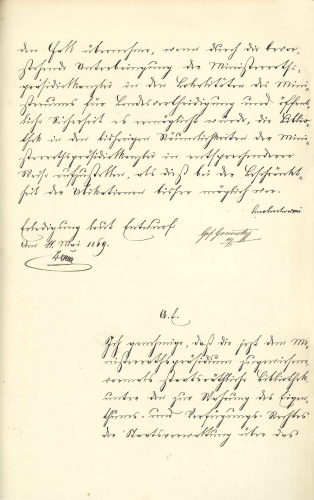 den Hof übernehme, wenn durch die bevor-
stehende Unterbringung des Ministerraths-
präsidialkanzlei in den Lokalitäten des Mini-
steriums für Landesvertheidigung und öffent-
liche Sicherheit es ermöglicht würde, die Biblio-
thek in den bisherigen Räumlichkeiten der Mini-
sterrathspräsidialkanzlei in entsprechenderer
Weise aufzustellen, als dieß bei der Beschränkt-
heit der Ubikationen bisher möglich war.
Erledigung laut Entwurf
am 11. Mai 1869.
A. E.
Ich genehmige, daß die jetzt dem Mi-
nisterrathspräsidium zugewiesene
vormals staatsräthliche Bibliothek
unter der zur Wahrung des Eigen-
thums- und Verfügungs-Rechtes
der Staatsverwaltung über das